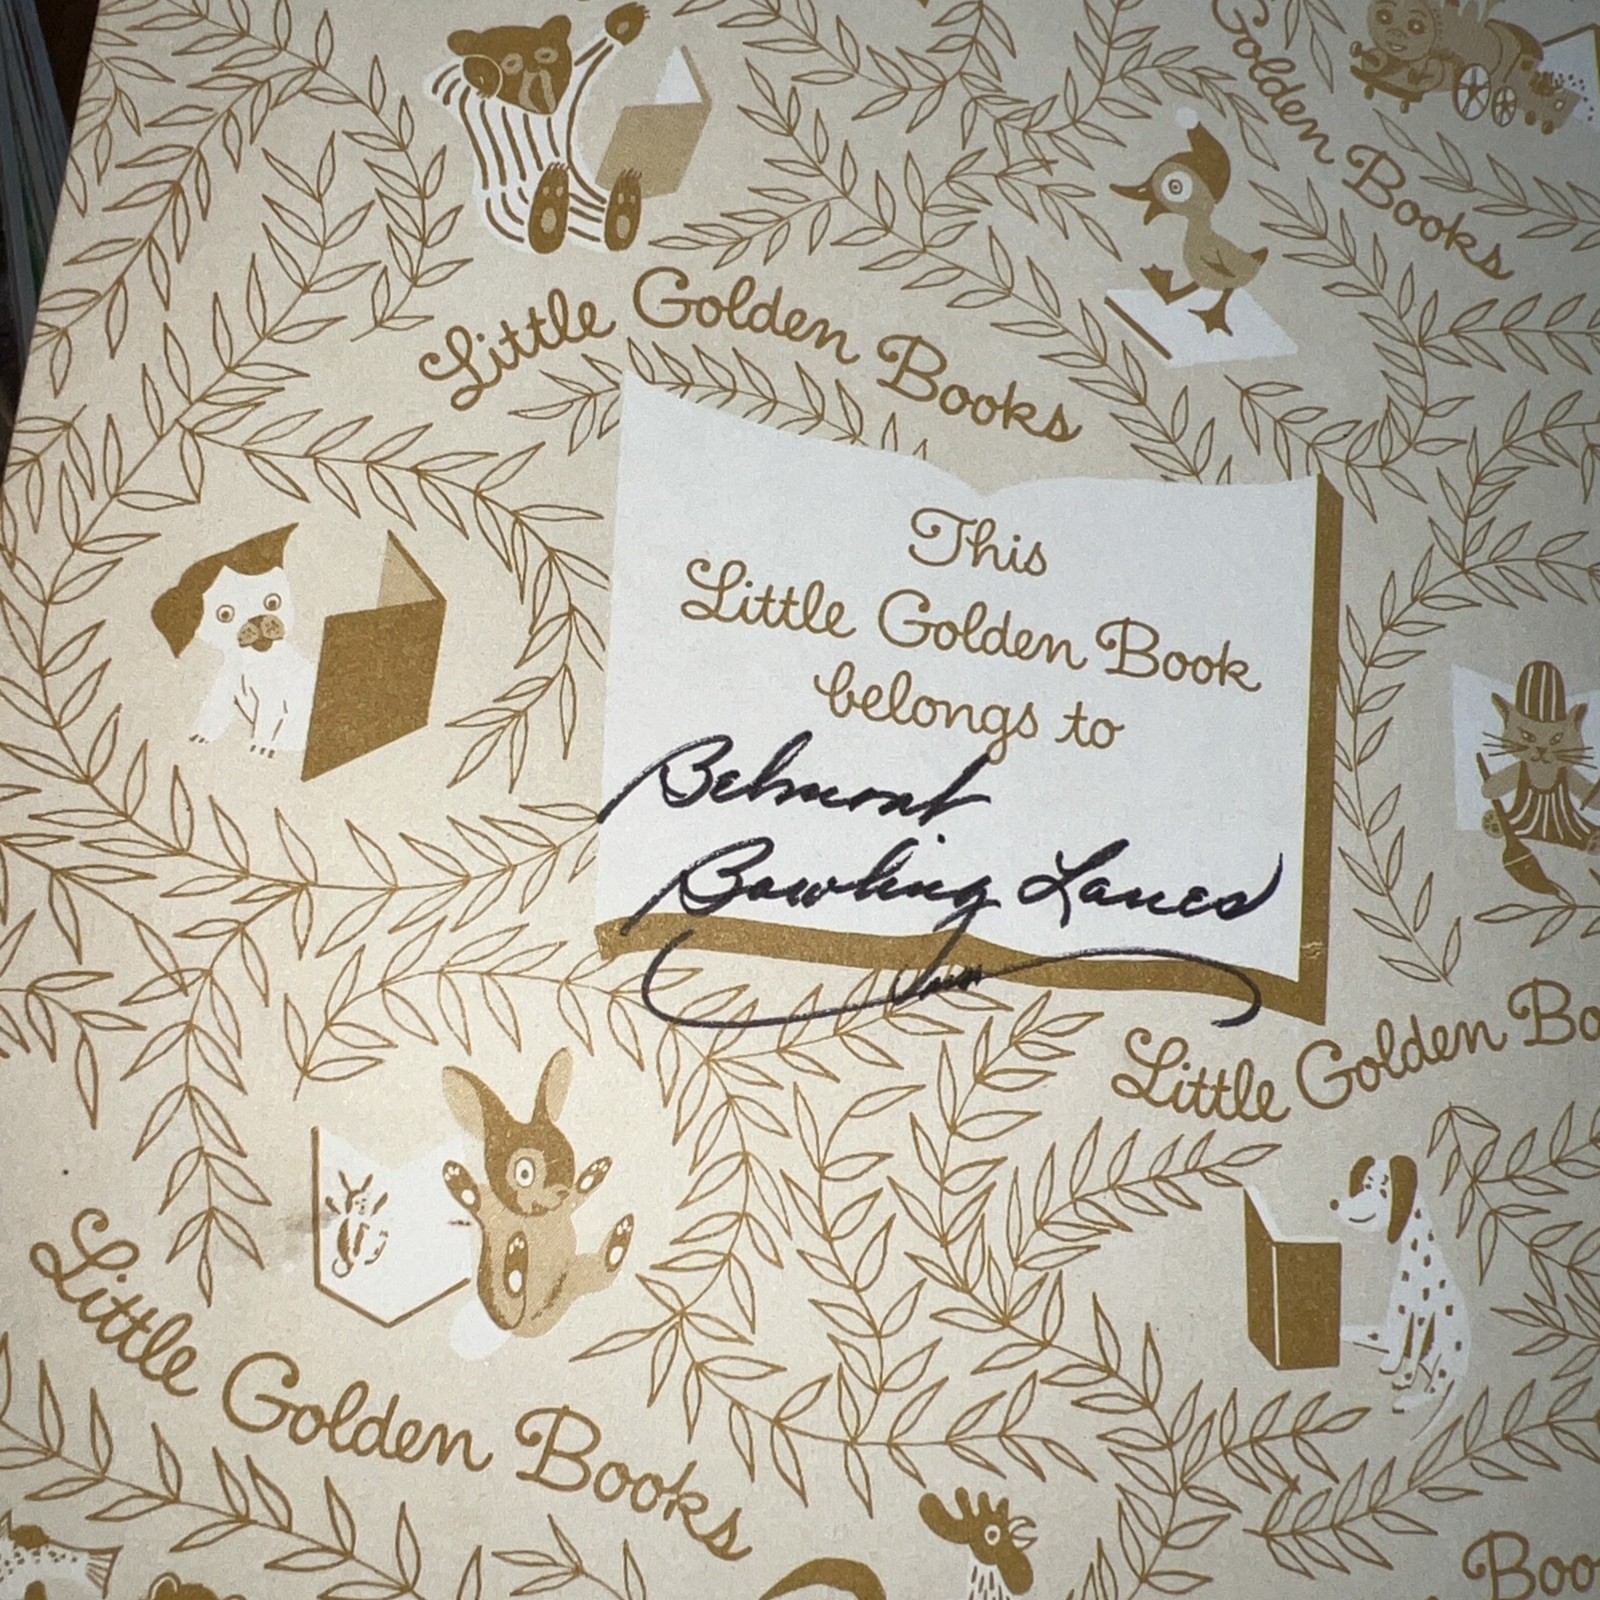 Golden Books
Little Golden Books
This
Little Golden Book
belongs to
Belmont
Bowling Lanes
Little Golden Bo
Little Golden Books
Boo